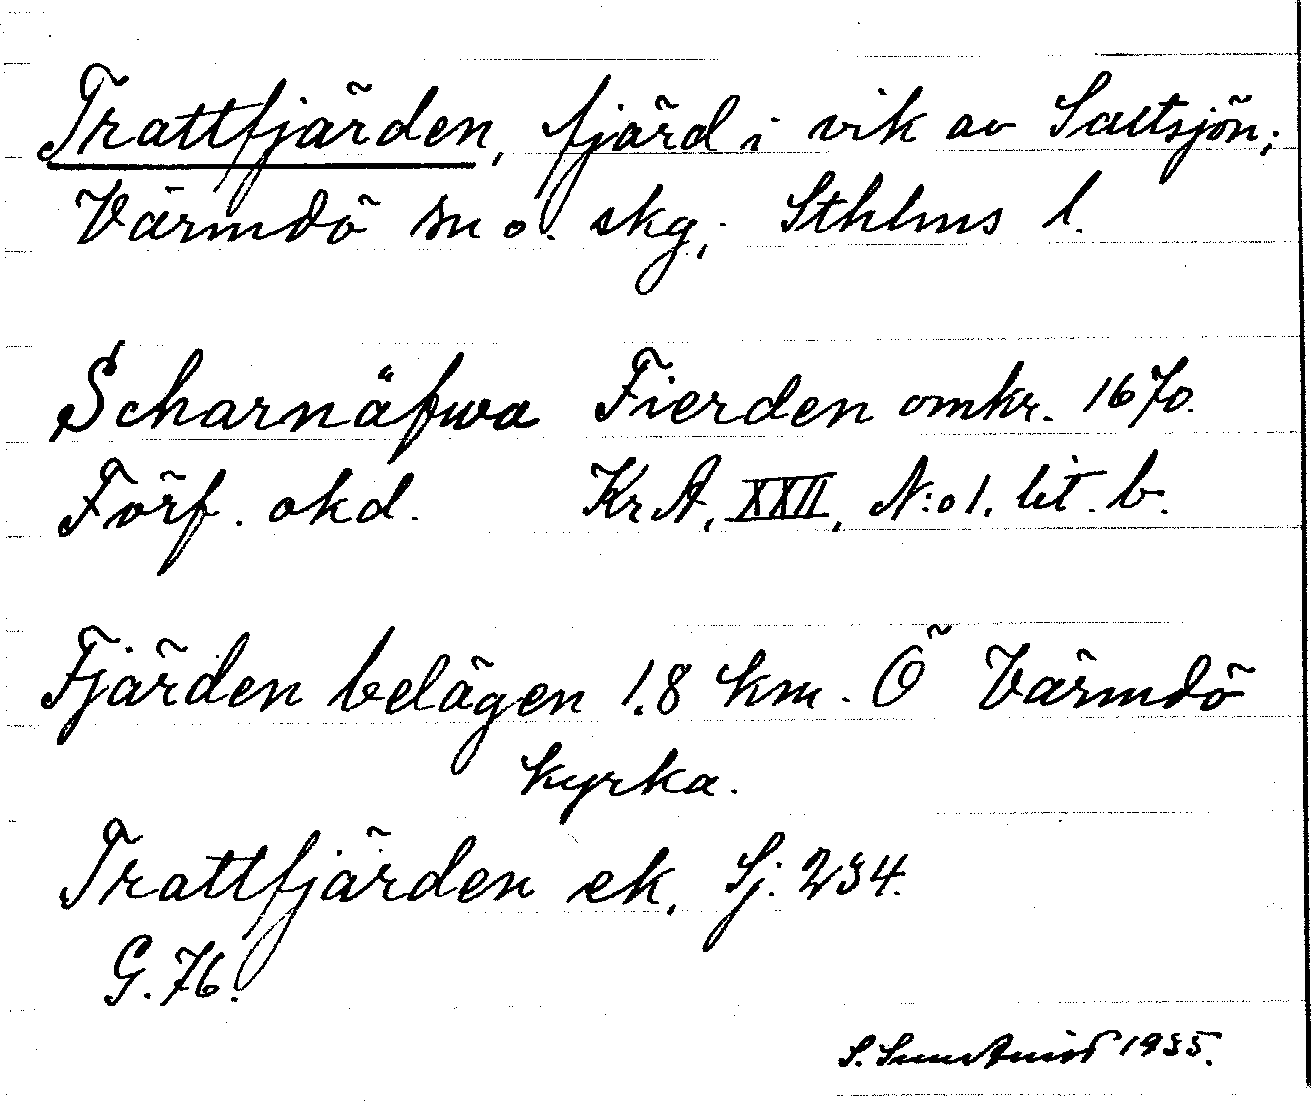 Trattfjärden, fjärd i vik av Saltsjön;
Värmdö sn o. skg; Sthlms l.
Scharnäfwa Fierden omkr. 1670.
Förf. okd. Kr A, XXII, N:o 1. lit. b.
Fjärden belägen 1.8 km. Ö Värmdö
kyrka.
Trattfjärden ek, Sj. 234.
G. 76.
S. 1935.